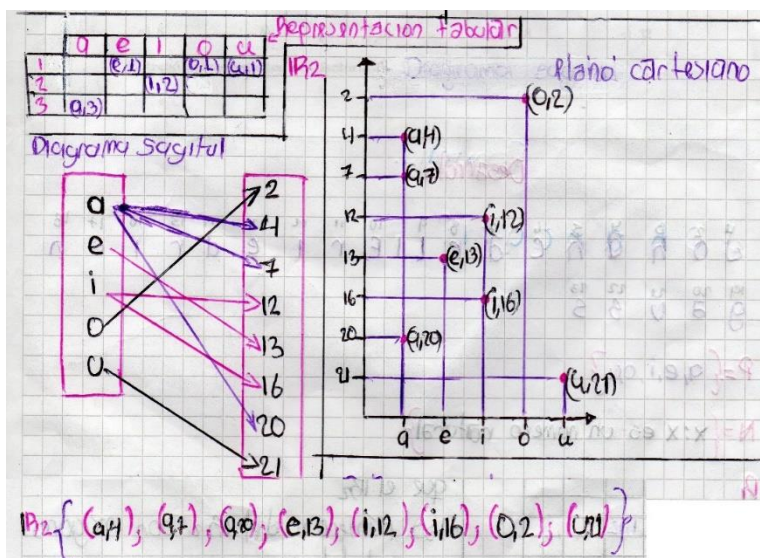 Representacion tabular
a e i o u
1 (e,1) (o,1) (u,1)
2 (i,2)
3 (a,3)
Diagrama sagital
a
e
i
o
u
2
4
7
12
13
16
20
21
IR2
plano cartesiano
2 (0,2)
4 (a,4)
7 (a,7)
12 (i,12)
13 (e,13)
16 (i,16)
20 (a,20)
21 (u,21)
a e i o u
IR2{(a,4); (a,7); (a,20); (e,13); (i,12); (i,16); (0,2); (u,21)}